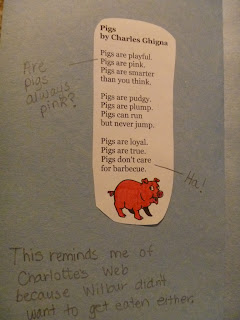 Pigs
by Charles Ghigna
Pigs are playful.
Pigs are pink.
Pigs are smarter
than you think.
Pigs are pudgy.
Pigs are plump.
Pigs can run
but never jump.
Pigs are loyal.
Pigs are true.
Pigs don't care
for barbecue.
Are
pigs
always
pink?
Ha!
This reminds me of
Charlotte's Web
because Wilbur didn't
want to get eaten either.